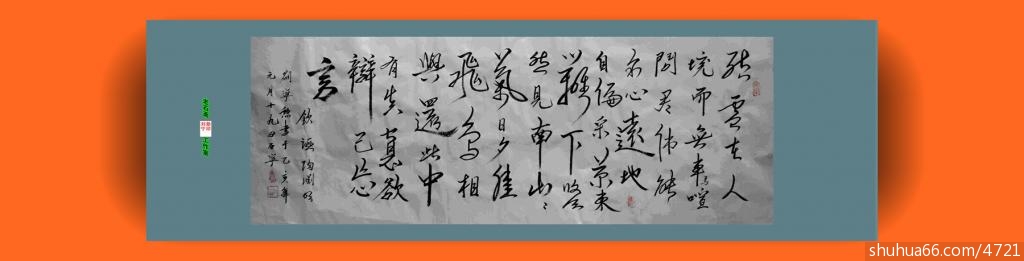 結廬在人
境而無車馬喧
問君何能
尔心遠地
自偏采菊東
籬下悠
然見南山々
氣日夕佳
飛鳥相
與還此中
有真意欲
辯已忘
言
陶淵明
書于乙亥年
元月十九日
工作室
shuhua66.com/4721